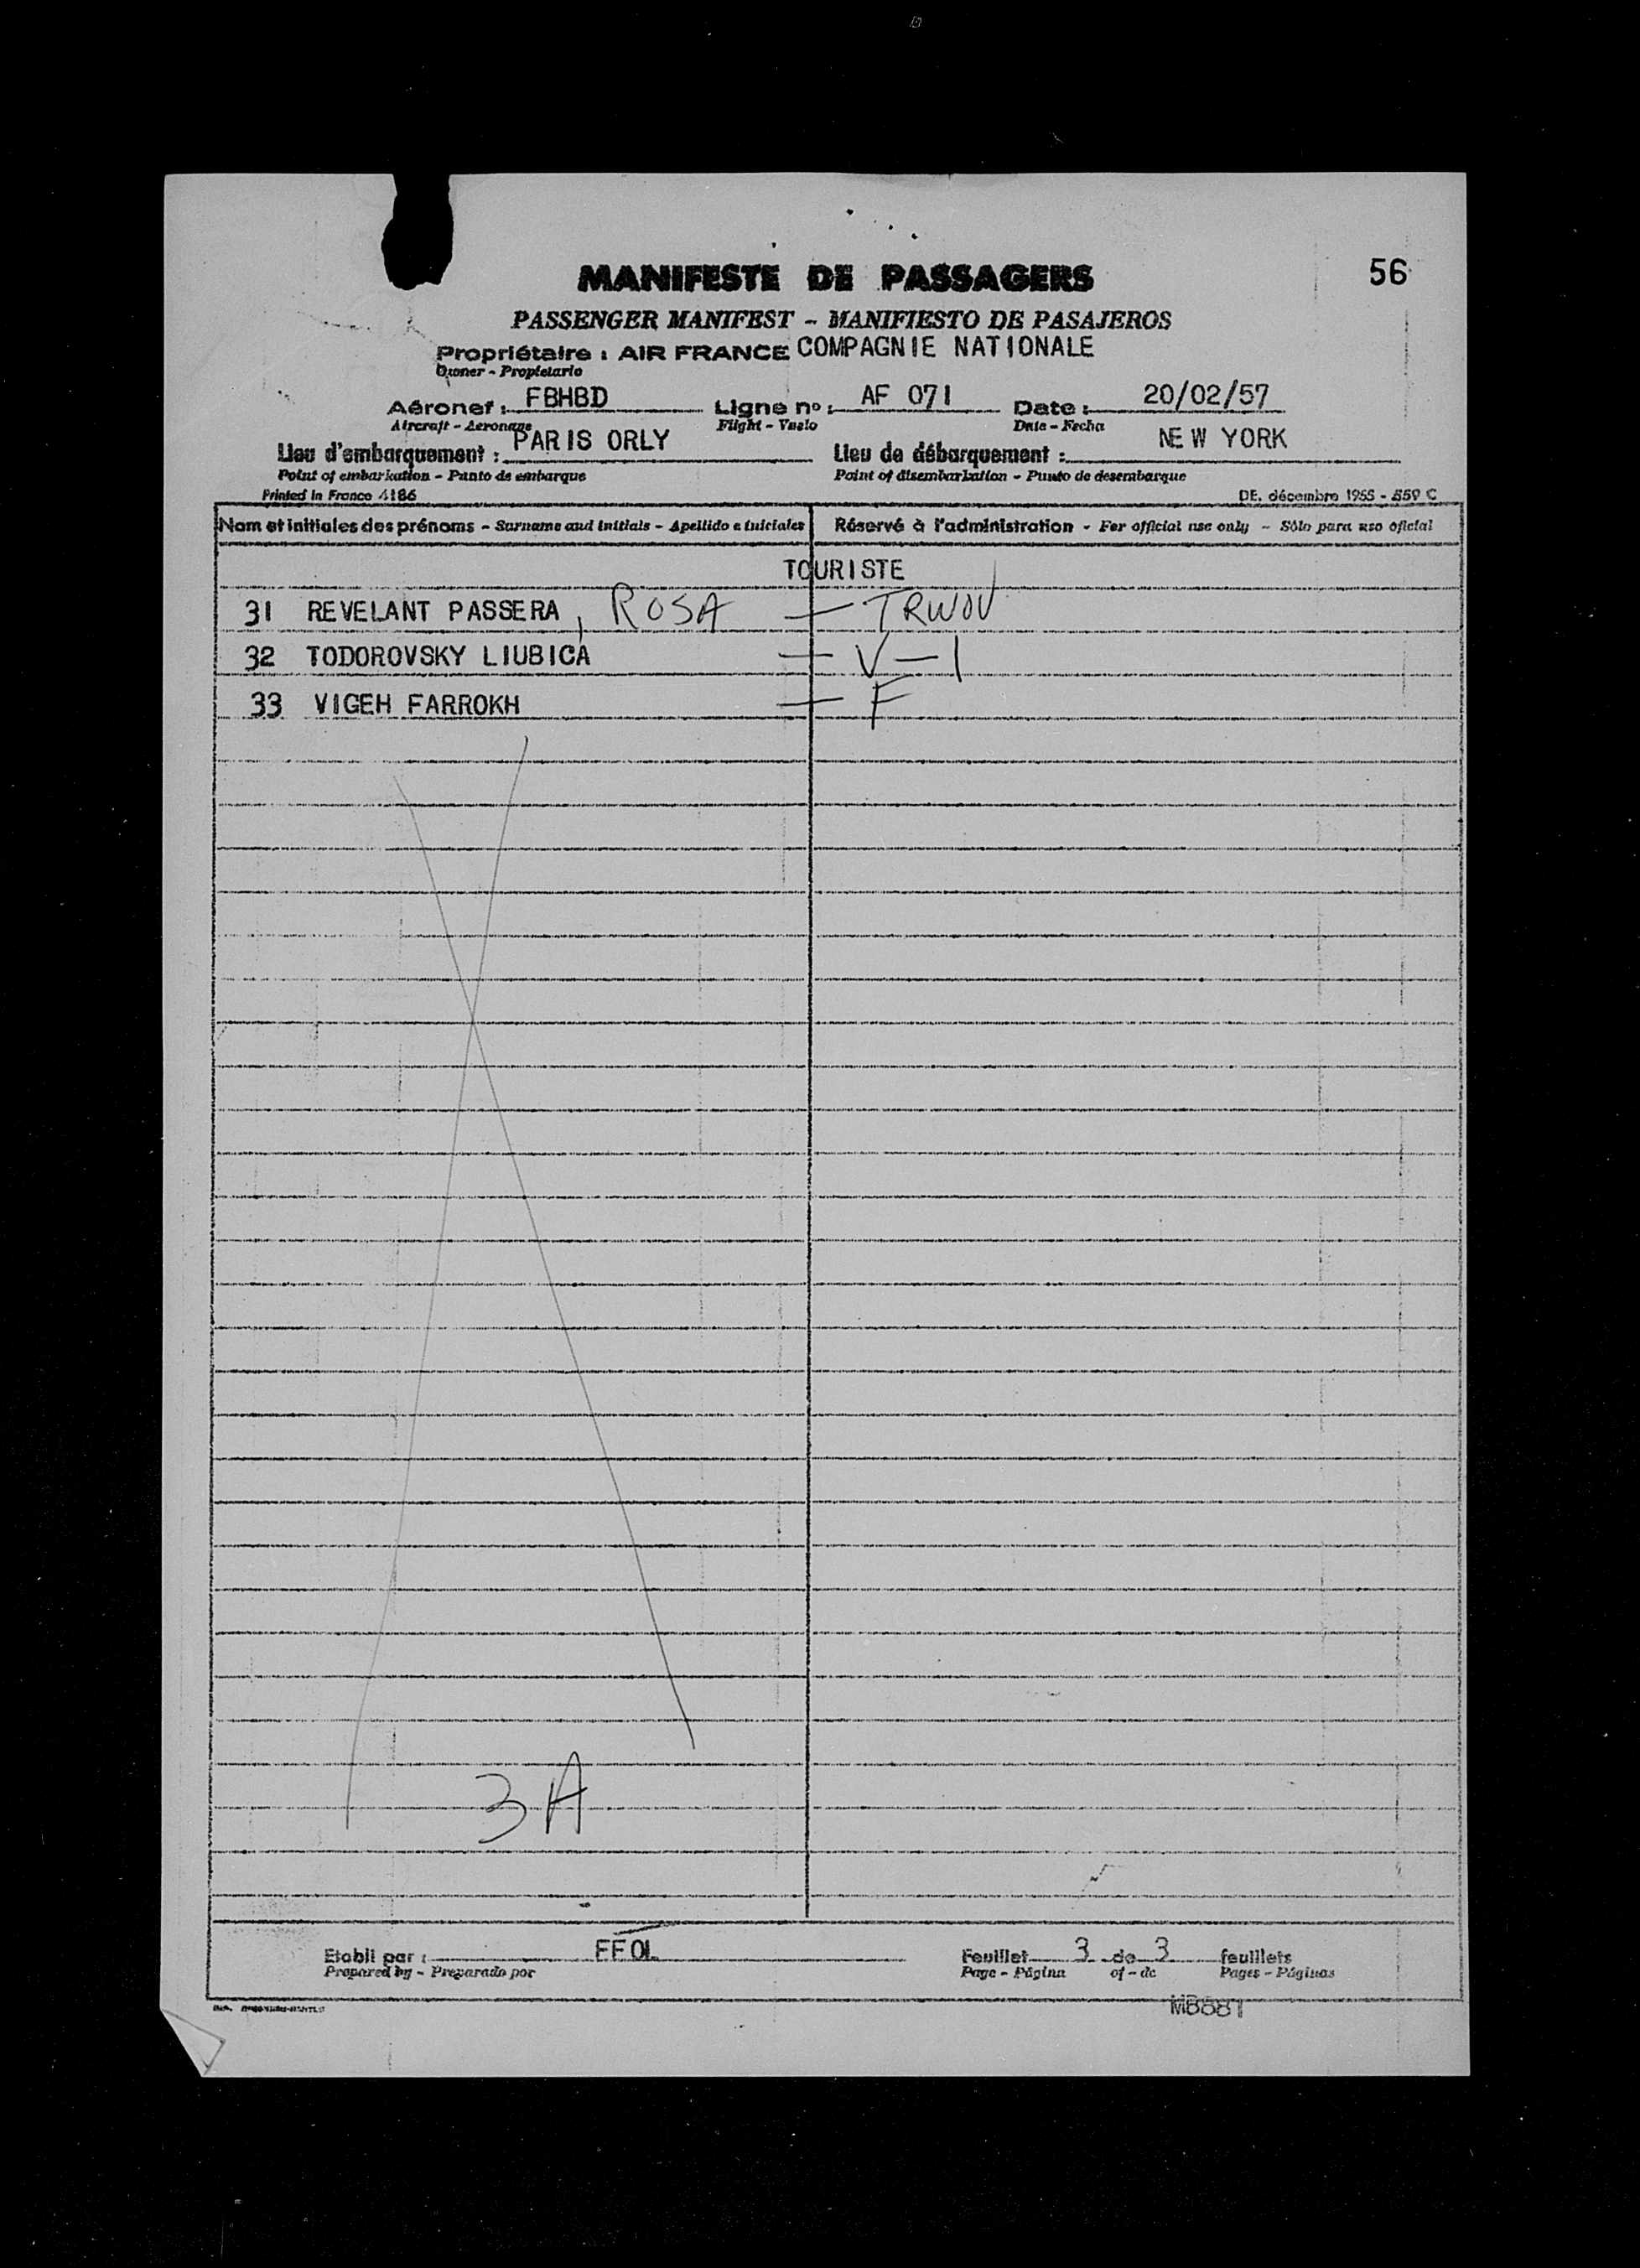 MANIFESTE DE PASSAGERS
56
PASSENGER MANIFEST - MANIFIESTO DE PASAJEROS
Propriétaire : AIR FRANCE COMPAGNIE NATIONALE
Owner - Propietario
Aéronef : FBHBD Ligne nº : AF 071 Date : 20/02/57
Aircraft - Aeronave Flight - Vuelo Date - Fecha
Lieu d'embarquement : PARIS ORLY Lieu de débarquement : NEW YORK
Point of embarkation - Punto de embarque Point of disembarkation - Punto de desembarque
Printed in France 4186 DE. décembre 1955 - 559 C
Nom et initiales des prénoms - Surname and initials - Apellido e iniciales Réservé à l'administration - For official use only - Sólo para uso oficial
TOURISTE
31 REVELANT PASSERA, ROSA — TRWOV
32 TODOROVSKY LIUBICA — V — 1
33 VIGEH FARROKH — F
3A
Etabli par : FFOL Feuillet 3 de 3 feuillets
Prepared by - Preparado por Page - Página of - de Pages - Páginas